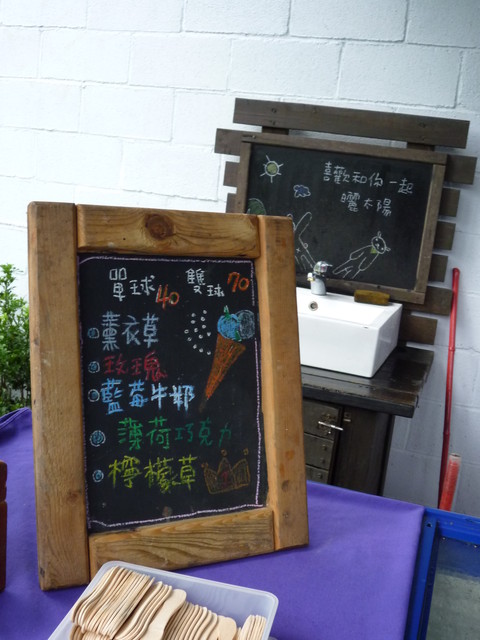 喜歡和你一起
曬太陽
單球40 雙球70
薰衣草
玫瑰
藍莓牛奶
薄荷巧克力
檸檬草